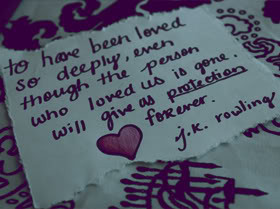 to have been loved
so deeply, even
though the person
who loved us is gone.
will give as protection
forever.
j.k. rowling